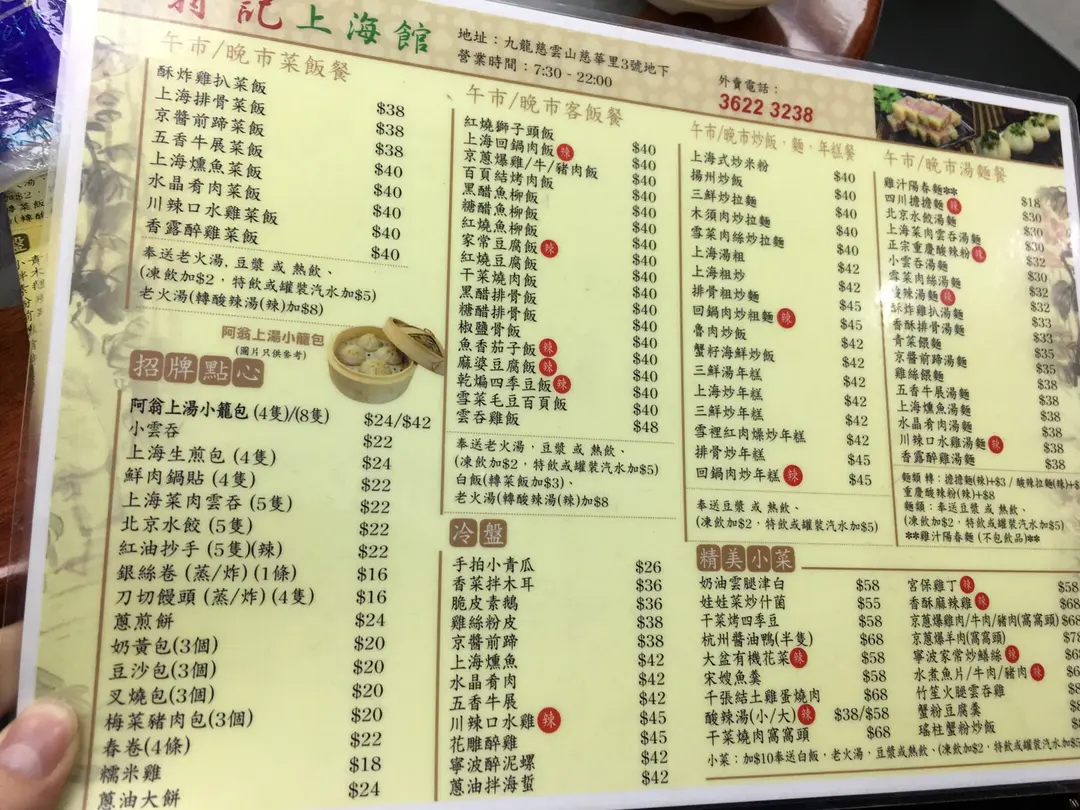 翁記上海館
地址：九龍慈雲山慈華里3號地下
營業時間：7:30 - 22:00
外賣電話：
3622 3238
午市/晚市菜飯餐
酥炸雞扒菜飯 $38
上海排骨菜飯 $38
京醬前蹄菜飯 $38
五香牛展菜飯 $40
上海燻魚菜飯 $40
水晶肴肉菜飯 $40
川辣口水雞菜飯 $40
香露醉雞菜飯 $40
奉送老火湯, 豆漿 或 熱飲、
(凍飲加$2，特飲或罐裝汽水加$5)
老火湯(轉酸辣湯(辣)加$8)
阿翁上湯小籠包
(圖片只供參考)
招牌點心
阿翁上湯小籠包 (4隻)/(8隻) $24/$42
小雲吞 $22
上海生煎包 (4隻) $24
鮮肉鍋貼 (4隻) $22
上海菜肉雲吞 (5隻) $22
北京水餃 (5隻) $22
紅油抄手 (5隻)(辣) $22
銀絲卷 (蒸/炸) (1條) $16
刀切饅頭 (蒸/炸) (4隻) $16
蔥煎餅 $24
奶黃包(3個) $20
豆沙包(3個) $20
叉燒包(3個) $20
梅菜豬肉包(3個) $20
春卷(4條) $22
糯米雞 $18
蔥油大餅 $24
午市/晚市客飯餐
紅燒獅子頭飯 $40
上海回鍋肉飯 辣 $40
京蔥爆雞/牛/豬肉飯 $40
百頁結烤肉飯 $40
黑醋魚柳飯 $40
糖醋魚柳飯 $40
紅燒魚柳飯 $40
家常豆腐飯 辣 $40
紅燒豆腐飯 $40
干菜燒肉飯 $40
黑醋排骨飯 $40
糖醋排骨飯 $40
椒鹽骨飯 $40
魚香茄子飯 辣 $40
麻婆豆腐飯 辣 $40
乾煸四季豆飯 辣 $40
雪菜毛豆百頁飯 $40
雲吞雞飯 $48
奉送老火湯，豆漿 或 熱飲、
(凍飲加$2，特飲或罐裝汽水加$5)
白飯(轉菜飯加$3)、
老火湯(轉酸辣湯(辣)加$8
冷盤
手拍小青瓜 $26
香菜拌木耳 $36
脆皮素鵝 $36
雞絲粉皮 $38
京醬前蹄 $38
上海燻魚 $42
水晶肴肉 $42
五香牛展 $42
川辣口水雞 辣 $45
花雕醉雞 $45
寧波醉泥螺 $42
蔥油拌海蜇 $42
午市/晚市炒飯，麵，年糕餐
上海式炒米粉 $40
揚州炒飯 $40
三鮮炒拉麵 $40
木須肉炒拉麵 $40
雪菜肉絲炒拉麵 $40
上海湯粗 $42
上海粗炒 $42
排骨粗炒麵 $45
回鍋肉炒粗麵 辣 $45
魯肉炒飯 $42
蟹籽海鮮炒飯 $42
三鮮湯年糕 $42
上海炒年糕 $42
三鮮炒年糕 $42
雪裡紅肉燥炒年糕 $42
排骨炒年糕 $45
回鍋肉炒年糕 辣 $45
奉送豆漿 或 熱飲、
(凍飲加$2，特飲或罐裝汽水加$5)
午市/晚市湯麵餐
雞汁陽春麵** $18
四川擔擔麵 辣 $30
北京水餃湯麵 $30
上海菜肉雲吞湯麵 $30
正宗重慶酸辣粉 辣 $32
小雲吞湯麵 $30
雪菜肉絲湯麵 $32
酸辣湯麵 辣 $32
酥炸雞扒湯麵 $33
香酥排骨湯麵 $33
青菜餵麵 $35
京醬前蹄湯麵 $35
雞絲餵麵 $38
五香牛展湯麵 $38
上海燻魚湯麵 $38
水晶肴肉湯麵 $38
川辣口水雞湯麵 辣 $38
香露醉雞湯麵 $38
麵類 轉：擔擔麵(辣)+$3 / 酸辣拉麵(辣)+$
重慶酸辣粉(辣)+$8
麵類：奉送豆漿 或 熱飲、
(凍飲加$2，特飲或罐裝汽水加$5)
**雞汁陽春麵 (不包飲品)**
精美小菜
奶油雲腿津白 $58
娃娃菜炒什菌 $55
干菜烤四季豆 $58
杭州醬油鴨(半隻) $68
大盆有機花菜 辣 $58
宋嫂魚羹 $58
千張結土雞蛋燒肉 $68
酸辣湯(小/大) 辣 $38/$58
干菜燒肉窩窩頭 $68
宮保雞丁 辣 $58
香酥麻辣雞 辣
京蔥爆雞肉/牛肉/豬肉(窩窩頭) $68
京蔥爆羊肉(窩窩頭)
寧波家常炒鱔絲 辣
水煮魚片/牛肉/豬肉 辣
竹笙火腿雲吞雞
蟹粉豆腐羹
瑤柱蟹粉炒飯
小菜：加$10奉送白飯，老火湯，豆漿或熱飲、(凍飲加$2，特飲或罐裝汽水加$5